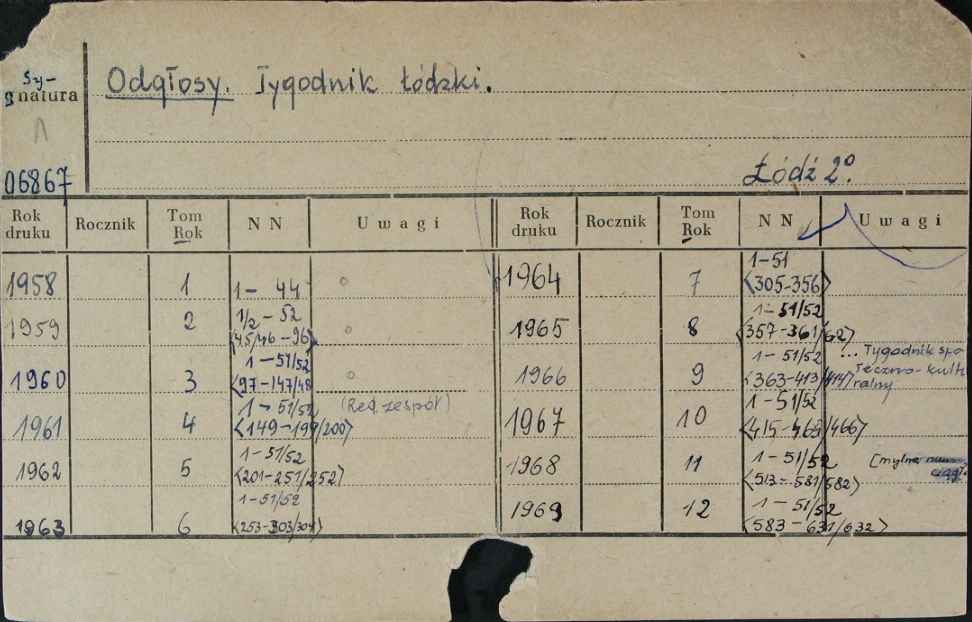 Sy-
gnatura
Odgłosy. Tygodnik Łódzki.
06867
Łódź 2°.
Rok druku Rocznik Tom Rok NN Uwagi Rok druku Rocznik Tom Rok NN Uwagi
1958 1 1 - 44
1959 2 1/2 - 52 <45/46 - 96>
1960 3 1 - 51/52 <97-147/48>
1961 4 1 - 51/52 <149-199/200> (Red. zespół)
1962 5 1-51/52 <201-251/252>
1963 6 1-51/52 <253-303/304>
1964 7 1-51 <305-356>
1965 8 1-51/52 <357-361/62>
1966 9 1-51/52 <363-413/414> ... Tygodnik społeczno-kulturalny
1967 10 1-51/52 <415-465/466>
1968 11 1-51/52 <513-581/582> [mylna
1969 12 1-51/52 <583-631/632>